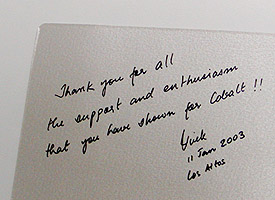 Thank you for all
the support and enthusiasm
that you have shown for Cobalt !!
Vivek
11 Jan 2003
Los Altos